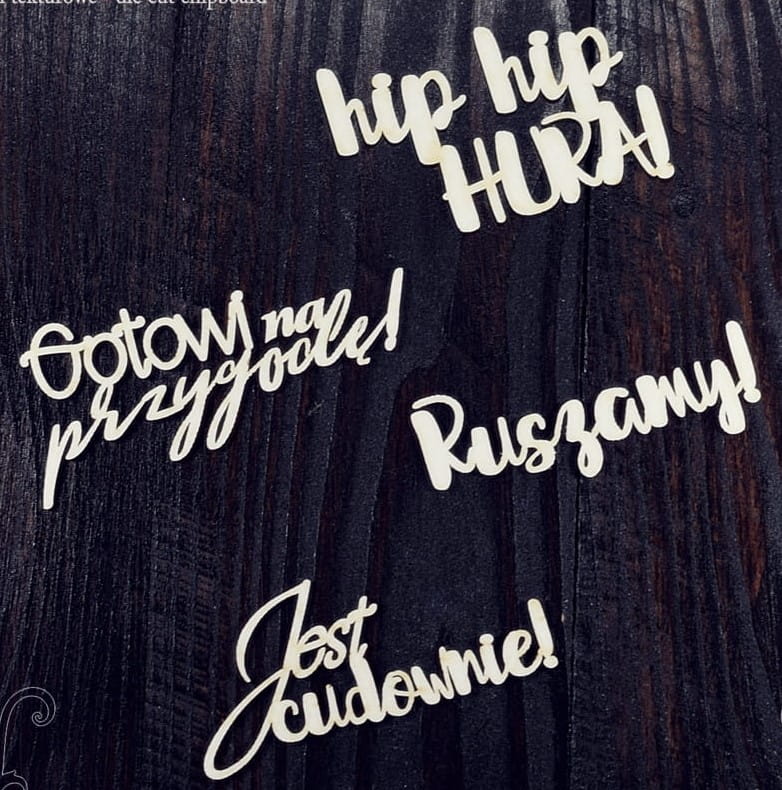 tekturowe - die cut chipboard
hip hip
HURA!
Gotowi na
przygodę!
Ruszamy!
Jest
cudownie!